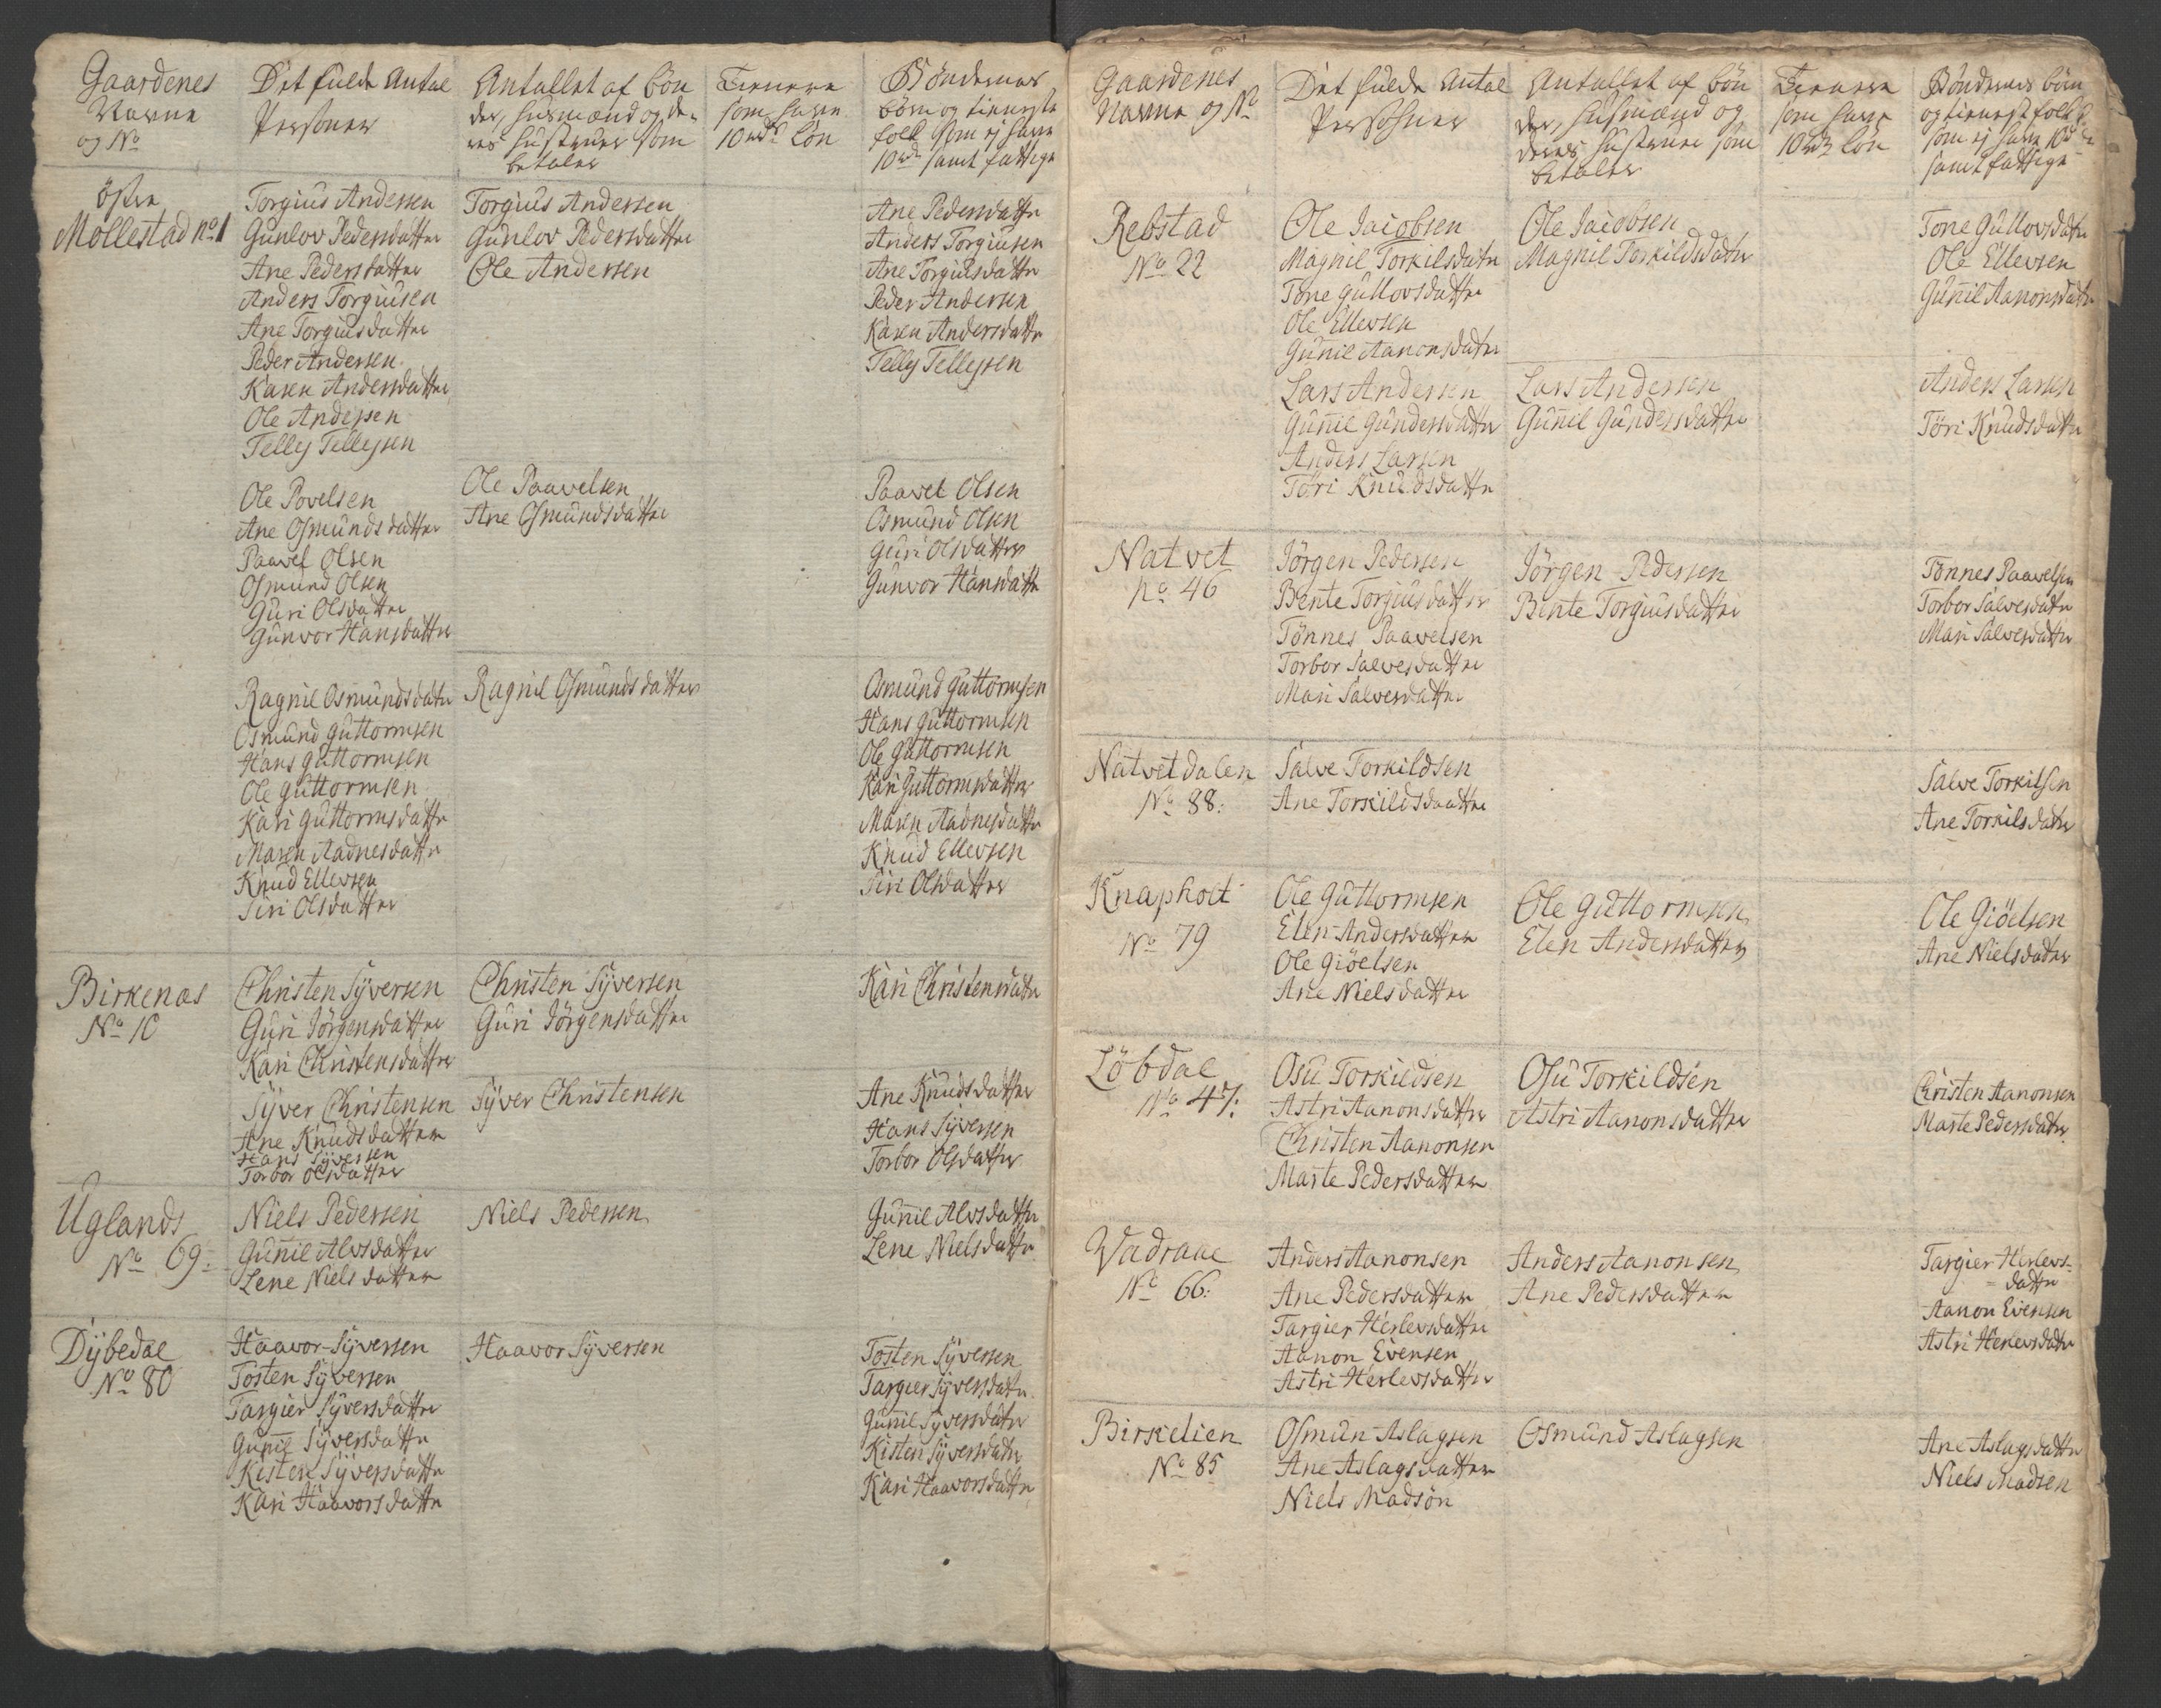 Gaardenes
Navne
og No
Det fulde Antal
Personer
Antallet af bön
der, Husmænd og de-
res Hustruer som
betaler
Tienere
som have
10 rdr Lön
Böndernes
börn og tieneste
folk som ej have
10 rdr samt fattige
östre
Mollestad no 1
Torgius Andersen
Gunlov Pedersdatter
Ane Pedersdatter
Anders Torgiusen
Ane Torgiusdatter
Peder Andersen
Karen Andersdatter
Ole Andersen
Tellef Tellefsen
Torgius Andersen
Gunlov Pedersdatter
Ole Andersen
Ane Pedersdatter
Anders Torgiusen
Ane Torgiusdatter
Peder Andersen
Karen Andersdatter
Tellef Tellefsen
Ole Povelsen
Ane Osmundsdatter
Paavel Olsen
Osmund Olsen
Guri Olsdatter
Gunvor Hansdatter
Ole Paavelsen
Ane Osmundsdatter
Paavel Olsen
Osmund Olsen
Guri Olsdatter
Gunvor Hansdatter
Ragnil Osmundsdatter
Osmund Guttormsen
Hans Guttormsen
Ole Guttormsen
Kari Guttormsdatter
Maren Aadnesdatter
Knud Ellevsen
Siri Olsdatter
Ragnil Osmundsdatter
Osmund Guttormsen
Hans Guttormsen
Ole Guttormsen
Kari Guttormsdatter
Maren Aadnesdatter
Knud Ellevsen
Siri Olsdatter
Birkenas
No 10
Christen Syversen
Guri Jörgensdatter
Kari Christensdatter
Christen Syversen
Guri Jörgensdatter
Kari Christensdatter
Syver Christensen
Ane Knudsdatter
Hans Syversen
Torbor Olsdatter
Syver Christensen
Ane Knudsdatter
Hans Syversen
Torbor Olsdatter
Uglands
No 69:
Niels Pedersen
Gunnil Alvsdatter
Lene Nielsdatter
Niels Pedersen
Gunnil Alvsdatter
Lene Nielsdatter
Dybedal
No 80
Haavor Syversen
Tosten Syversen
Targier Syversdatter
Gunnil Syversdatter
Kisten Syversdatter
Kari Haavorsdatter
Haavor Syversen
Tosten Syversen
Targier Syversdatter
Gunnil Syversdatter
Kisten Syversdatter
Kari Haavorsdatter
Gaardenes
Navne og No
Det fulde Antal
Personer
Antallet af bön
der, Husmænd og
deres Hustruer som
betaler
Tienere
som have
10 rdr Lön
Böndernes börn
og tienestfolk
som ej have 10 rdr
samt fattige
Rebstad
No 22
Ole Jacobsen
Magnil Torkilsdatter
Tone Gullovsdatter
Ole Ellevsen
Gunnil Aanonsdatter
Ole Jacobsen
Magnil Torkildsdatter
Tone Gullovsdatter
Ole Ellevsen
Gunnil Aanonsdatter
Lars Andersen
Gunnil Gundersdatter
Anders Larsen
Töri Knudsdatter
Lars Andersen
Gunnil Gundersdatter
Anders Larsen
Töri Knudsdatter
Natvet
no 46
Jörgen Pedersen
Bente Torgiusdatter
Tönnes Paavelsen
Torbor Salvesdatter
Mari Salvesdatter
Jörgen Pedersen
Bente Torgiusdatter
Tönnes Paavelsen
Torbor Salvesdatter
Mari Salvesdatter
Natvetdalen
No 88:
Salve Torkildsen
Ane Torkildsdaatter
Salve Torkilsen
Ane Torkilsdatter
Knapholt
No 79
Ole Guttormsen
Elen Andersdatter
Ole Giöelsen
Ane Nielsdatter
Ole Guttormsen
Elen Andersdatter
Ole Giöelsen
Ane Nielsdatter
Löbdal
No 47:
Osu Torkildsen
Astri Aanonsdatter
Christen Aanonsen
Marte Pedersdatter
Osu Torkildsen
Astri Aanonsdatter
Christen Aanonsen
Marte Pedersdatter
Vadraae
No 66:
Anders Aanonsen
Ane Pedersdatter
Targier Herlevsdatter
Aanon Evensen
Astri Herlevsdatter
Anders Aanonsen
Ane Pedersdatter
Targier Herlevs-
datter
Aanon Evensen
Astri Herlevsdatter
Birkelien
No 85
Osmun Aslagsen
Ane Aslagsdatter
Niels Madsön
Osmund Aslagsen
Ane Aslagsdatter
Niels Madsen